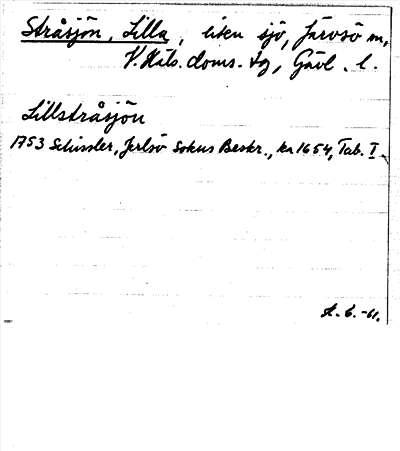 Stråsjön, Lilla, liten sjö, Järvsö sn,
V. Häls. doms. tg, Gävl. l.
Lillstråsjön
1753 Schissler, Jerlsö Sokns Beskr., ka 1654, Tab. I.
A. G. -61.